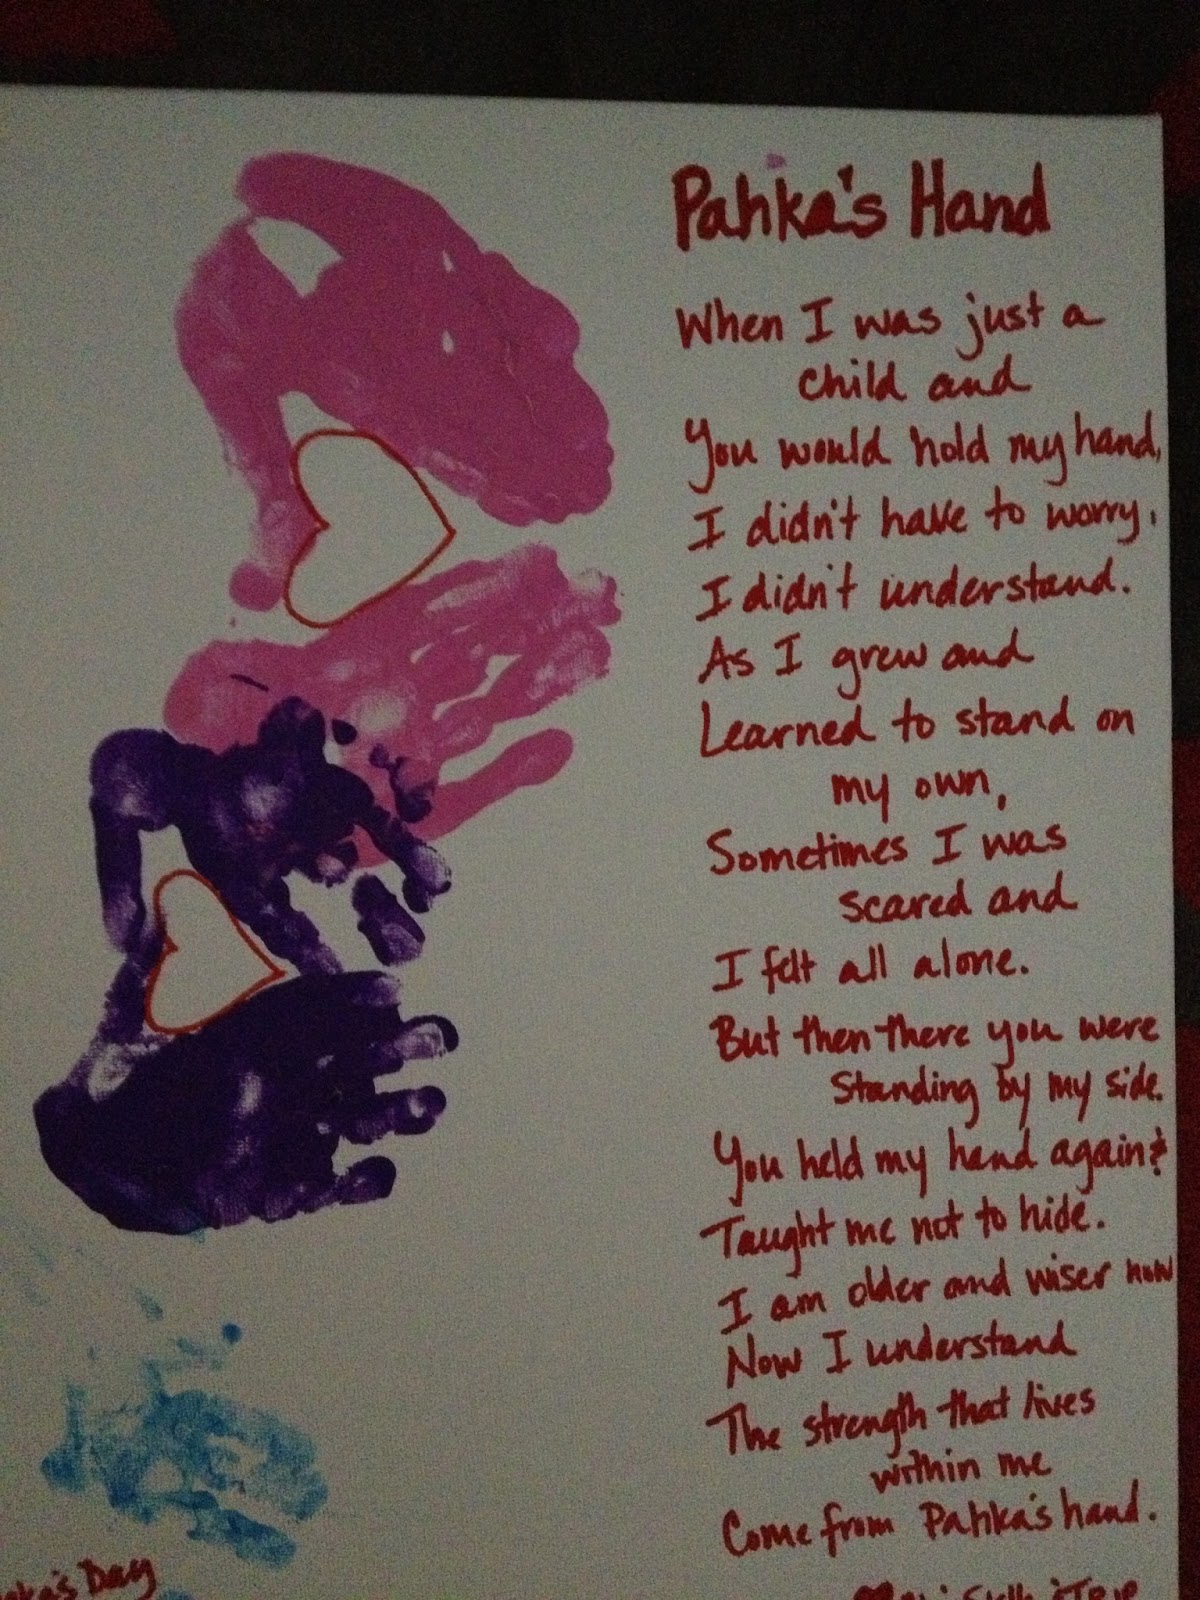 Pahka's Hand
When I was just a
child and
You would hold my hand,
I didn't have to worry,
I didn't understand.
As I grew and
Learned to stand on
my own,
Sometimes I was
scared and
I felt all alone.
But then there you were
standing by my side.
You held my hand again &
Taught me not to hide.
I am older and wiser now
Now I understand
The strength that lives
within me
Come from Pahka's hand.
Day